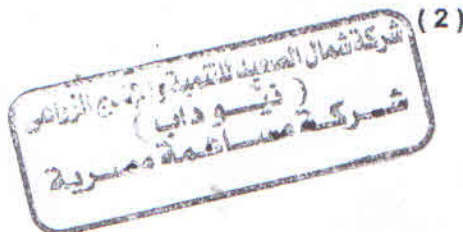 (2)
شركة شمال الصعيد للتنمية والإنتاج الزراعي
( نيوداب )
شركة مساهمة مصرية